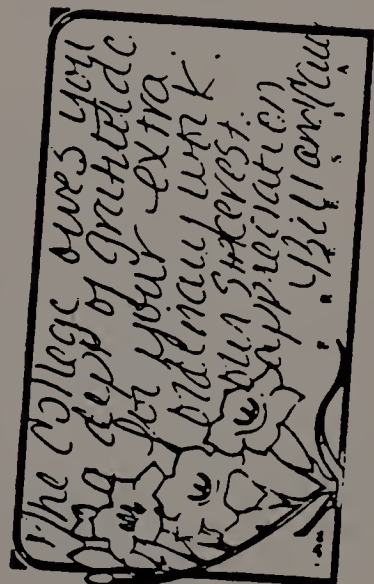 The College owes you
a debt of gratitude
for your extra
ordinary work.
our sincerest
appreciation
Bill and